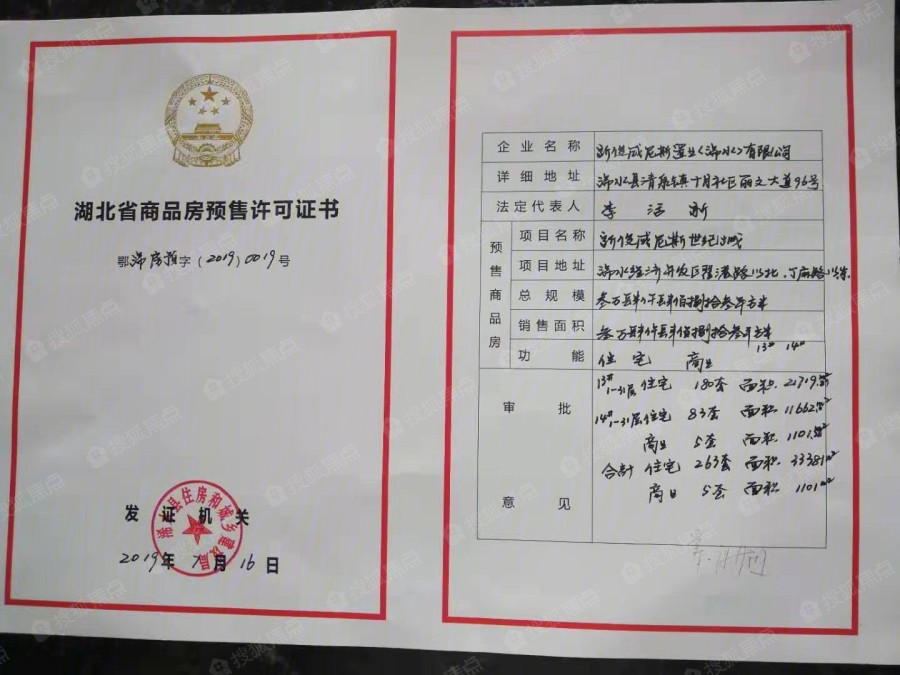 湖北省商品房预售许可证书
鄂浠房预字（2019）0019号
发证机关
浠水县住房和城乡建设局
2019年 月16日
企业名称 新俊威尼斯置业（浠水）有限公司
详细地址 浠水县清泉镇十月社区丽文大道96号
法定代表人 李 新
预售商品房
项目名称 新俊威尼斯世纪城
项目地址 浠水经济开发区 港路以北、丁麻路以东
总规模 叁万肆仟肆佰捌拾叁平方米
销售面积 叁万肆仟肆佰捌拾叁平方米
功能 住宅 商业 13# 14#
审批意见
13# 1-31层住宅 180套 面积 21719 m²
14# 1-31层住宅 83套 面积 11662 m²
商业 5套 面积 1101 m²
合计 住宅 263套 面积 33381m²
商业 5套 面积 1101m²
搜狐焦点